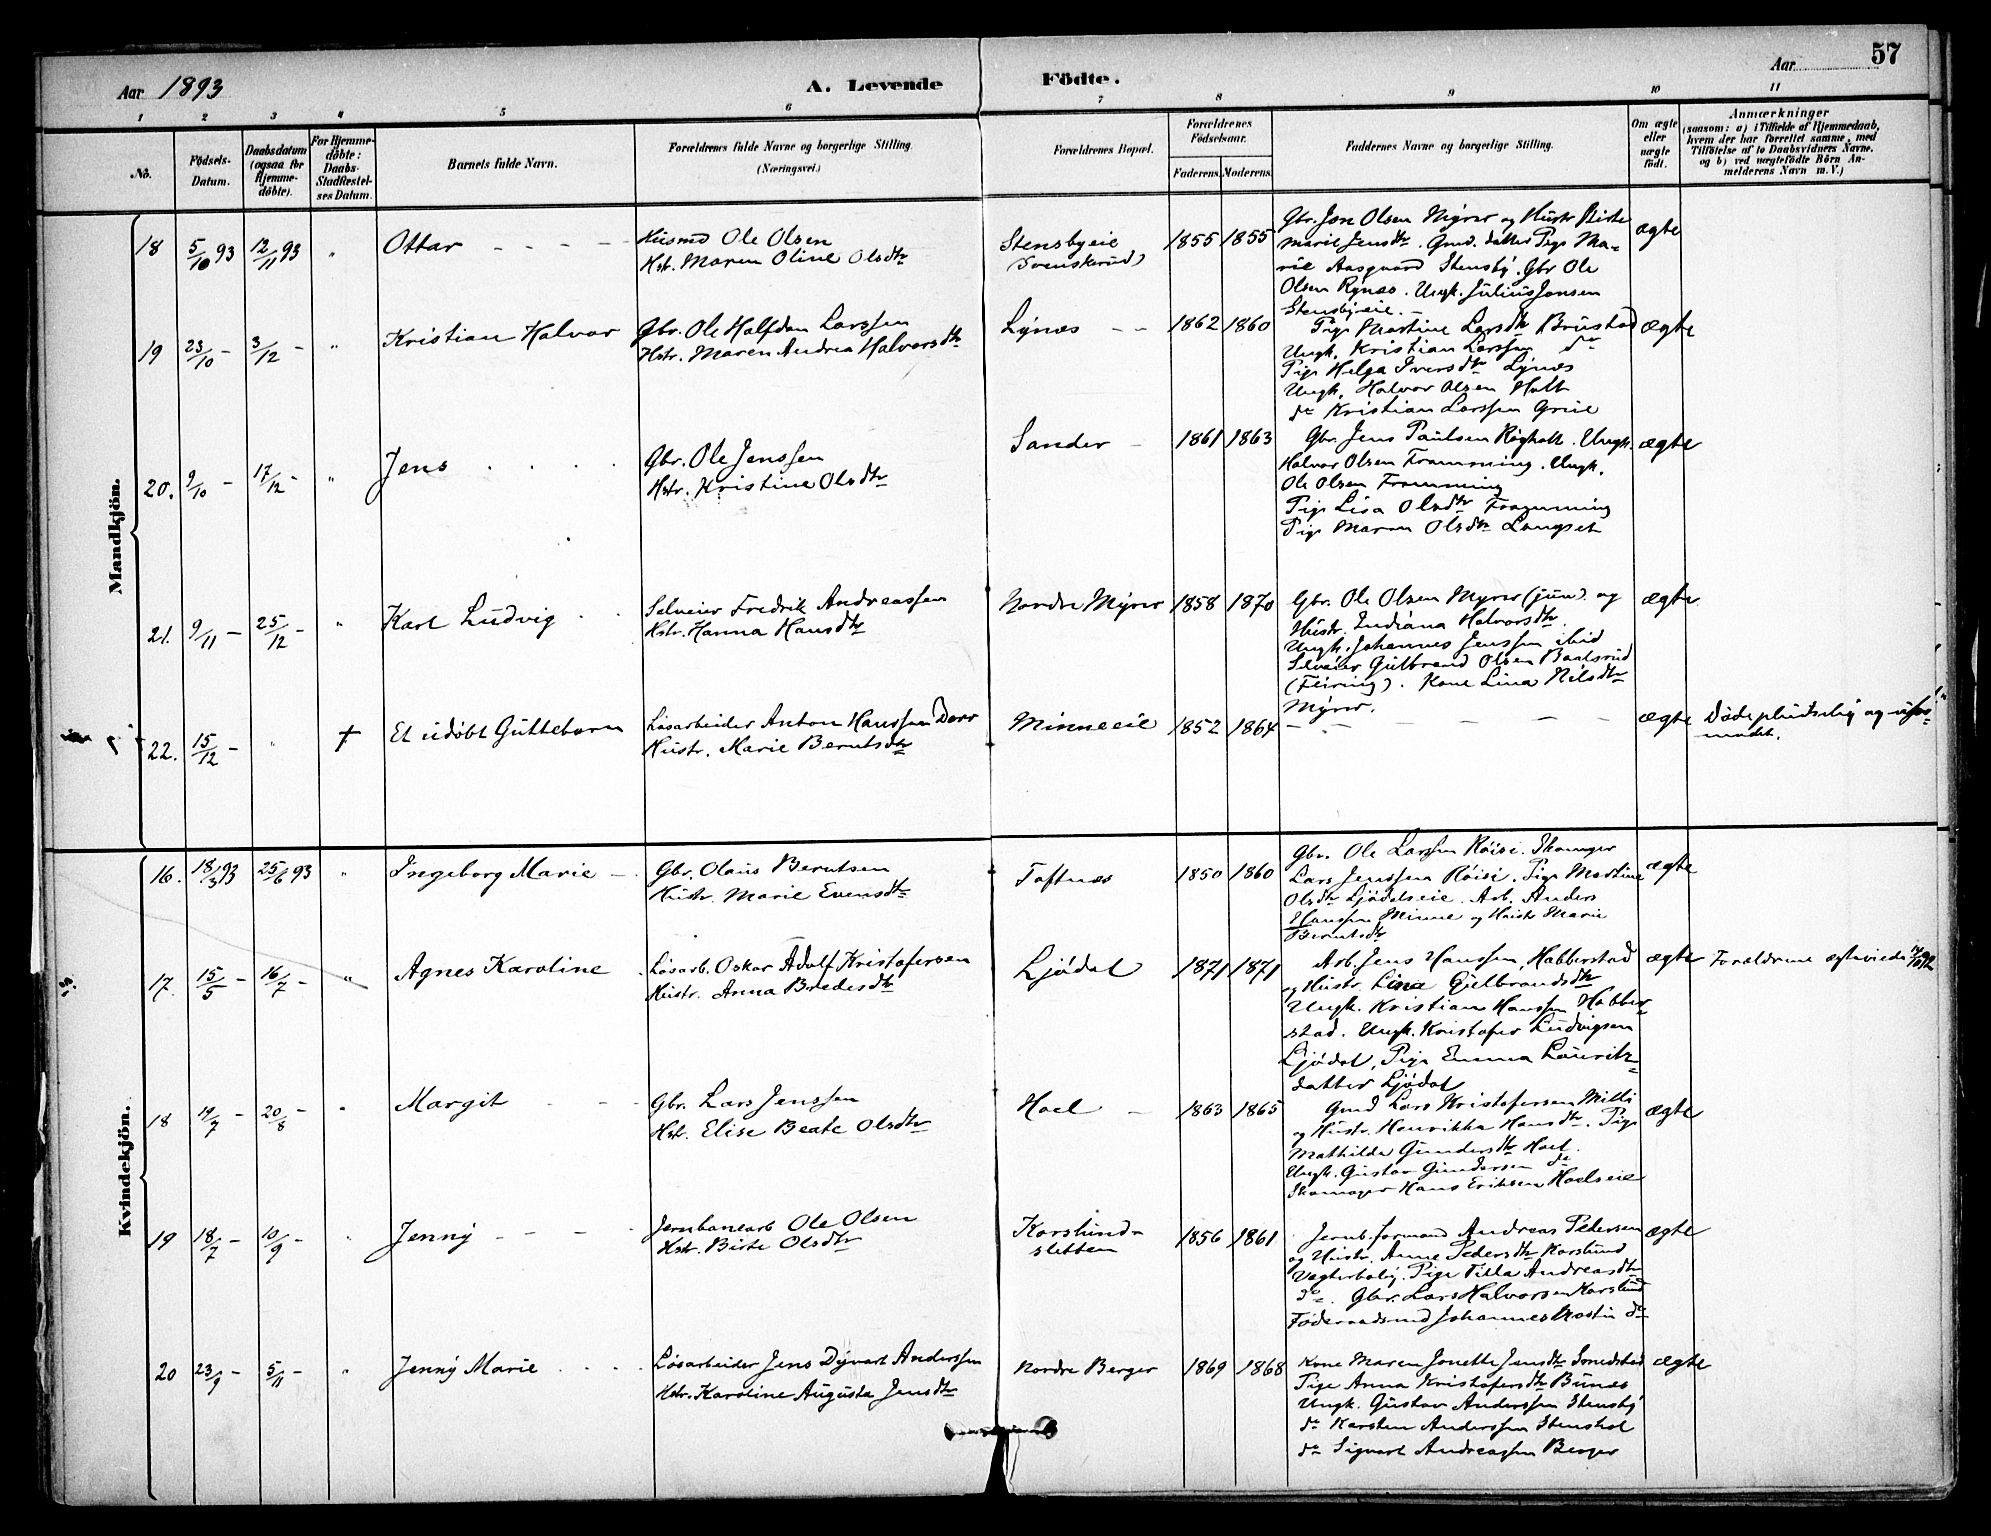 57
Aar 1893
A. Levende
Födte.
Aar
1 2 3 4 5 6 7 8 9 10 11
No.
Födsels-
Datum.
Daabsdatum
(ogsaa for
Hjemme-
döbte).
For Hjemme-
döbte:
Daabs-
Stadfæstel-
ses Datum.
Barnets fulde Navn.
Forældrenes fulde Navne og borgerlige Stilling.
(Næringsvei.)
Forældrenes Bopæl.
Forældrenes
Födselsaar.
Faderens. Moderens.
Faddernes Navne og borgerlige Stilling.
Om ægte
eller
uægte
födt.
Anmærkninger
(saasom: a) i Tilfælde af Hjemmedaab,
hvem der har forrettet samme, med
Tilföielse af to Daabsvidners Navne.
og b) ved uægtefödte Börn An-
melderens Navn m. V.)
Mandkjön.
18 5/10 93 12/11 93 " Ottar - - - -
Husmd Ole Olsen
Hstr. Maren Oline Olsdtr
Stensbyeie
(Svenskerud)
1855 1855
Gbr. Jon Olsen Myrer og Hustr Birte
Marie Jensdtr. Gmd. datter Pige Ma-
rie Aasgaard Stensby. Gbr Ole
Olsen Rynes. Ungk. Julius Jonsen
Stensbyeie.
ægte
19 23/10 - 3/12 - " Kristian Halvor
Gbr. Ole Halfdan Larssen
Hstr. Maren Andrea Halvorsdtr
Lynæs - -
1862 1860
Pige Martine Larsdtr Brustad
Ungk. Kristian Larssen do
Pige Helga Iversdtr Lynæs
Ungk. Halvor Olsen Holt
do Kristian Larssen Grue
ægte
20. 9/10 - 17/12 - " Jens . . . .
Gbr. Ole Jenssen
Hstr. Kristine Olsdtr
Sander -
1861 1863
Gbr. Jens Paulsen Røgholt. Ungk.
Halvor Olsen Framning. Ungk.
Ole Olsen Framning
Pige Lisa Olsdtr Framning
Pige Maren Olsdtr Langset
ægte
21. 9/11 - 25/12 - " Karl Ludvig . .
Selveier Fredrik Andreassen
Hstr. Hanna Hansdtr
Nordre Myrer
1858 1870
Gbr. Ole Olsen Myrer (jun). og
Hustr. Indiana Halvorsdtr.
Ungk. Johannes Jenssen ibid
Selveier Gulbrand Olsen Baalsrud
(Feiring). Kone Lina Nilsdtr
Myrer.
ægte
22. 15/12 - " † Et udøbt Guttebarn
Løsarbeider Anton Hanssen Dorr
Hustr. Marie Berntsdtr
Minneeie
1852 1864
- - - - - -
ægte
Døde pludselig og ufor-
modet.
Kvindekjön.
16. 18/3 93 25/6 93 " Ingeborg Marie -
Gbr. Olaus Berntsen
Hustr. Marie Evensdtr
Toftnæs
1850 1860
Gbr. Ole Larssen Røisi. Skomager
Lars Jenssen Røisi. Pige Martine
Olsdtr Ljødalseie. Arb. Anders
Hanssen Minne og Hustr Marie
Berntsdtr
ægte
17. 15/5 - 16/7 - " Agnes Karoline
Løsarb. Oskar Adolf Kristofersen
Hustr. Anna Bredesdtr
Ljødal
1871 1871
Arb. Jens Hanssen, Habberstad
og Hustr. Lina Gulbrandsdtr
Ungk. Kristian Hanssen Habber-
stad. Ungk. Kristofer Ludvigsen
Ljødal, Pige Emma Lauritz-
datter Ljødal
ægte
Forældrene ægteviede
18 19/7 - 20/8 - " Margit - -
Gbr. Lars Jenssen
Hstr. Elise Beate Olsdtr
Hoel -
1863 1865
Gmd Lars Kristofersen Milli
og Hustr. Henrikka Hansdtr. Pige
Mathilde Gundersdtr Hoel.
Ungk. Gustav Gundersen do
Skomager Hans Eriksen Hoelseie
ægte
19 18/7 - 10/9 - " Jenny - - -
Jernbanearb Ole Olsen
Hstr. Birte Olsdtr
Korslund-
sletten
1856 1861
Jernb. formand Andreas Pedersen
og Hustr. Anne Pedersdtr Korslund
Vogterbolig. Pige Tilla Andreasdtr
do. Gbr. Lars Halvorsen Korslund
Føderaadsmd Johannes Mostu do
ægte
20 23/9 - 5/11 - " Jenny Marie . . . .
Løsarbeider Jens Dyvart Anderssen
Hstr. Karoline Augusta Jensdtr
Nordre Berger
1869 1868
Kone Maren Jonette Jensdtr Smedstad
Pige Anna Kristofersdtr Bunæs
Ungk. Gustav Anderssen Stensby
do Karsten Anderssen Stenshol
do Sigvart Andreassen Berger
ægte